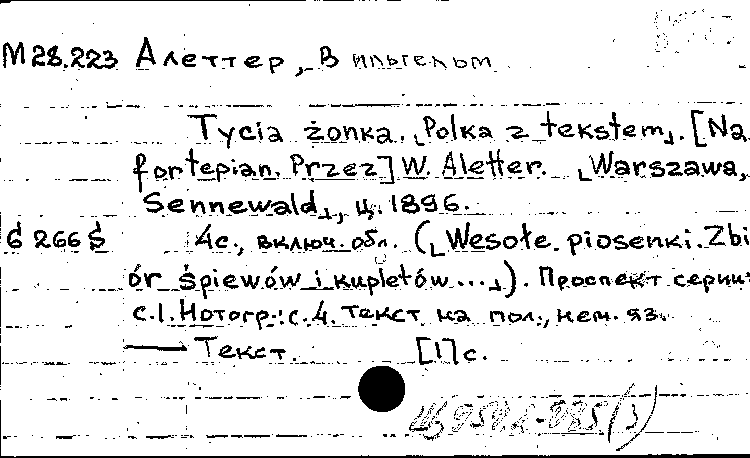 М 28.223 Алеттер, Вильгельм
Tycia żonka. „Polka z tekstem„. [Na
fortepian. Przez] W. Aletter. „Warszawa,
Sennewald„, ц. 1896.
6 266 Ś 4с., включ. обл. („Wesołe piosenki. Zbi
ór śpiewów i kupletów...„). Проспект серии:
с.1. Нотогр.: с.4. Текст на пол., нем. яз.
— Текст. [1] с.